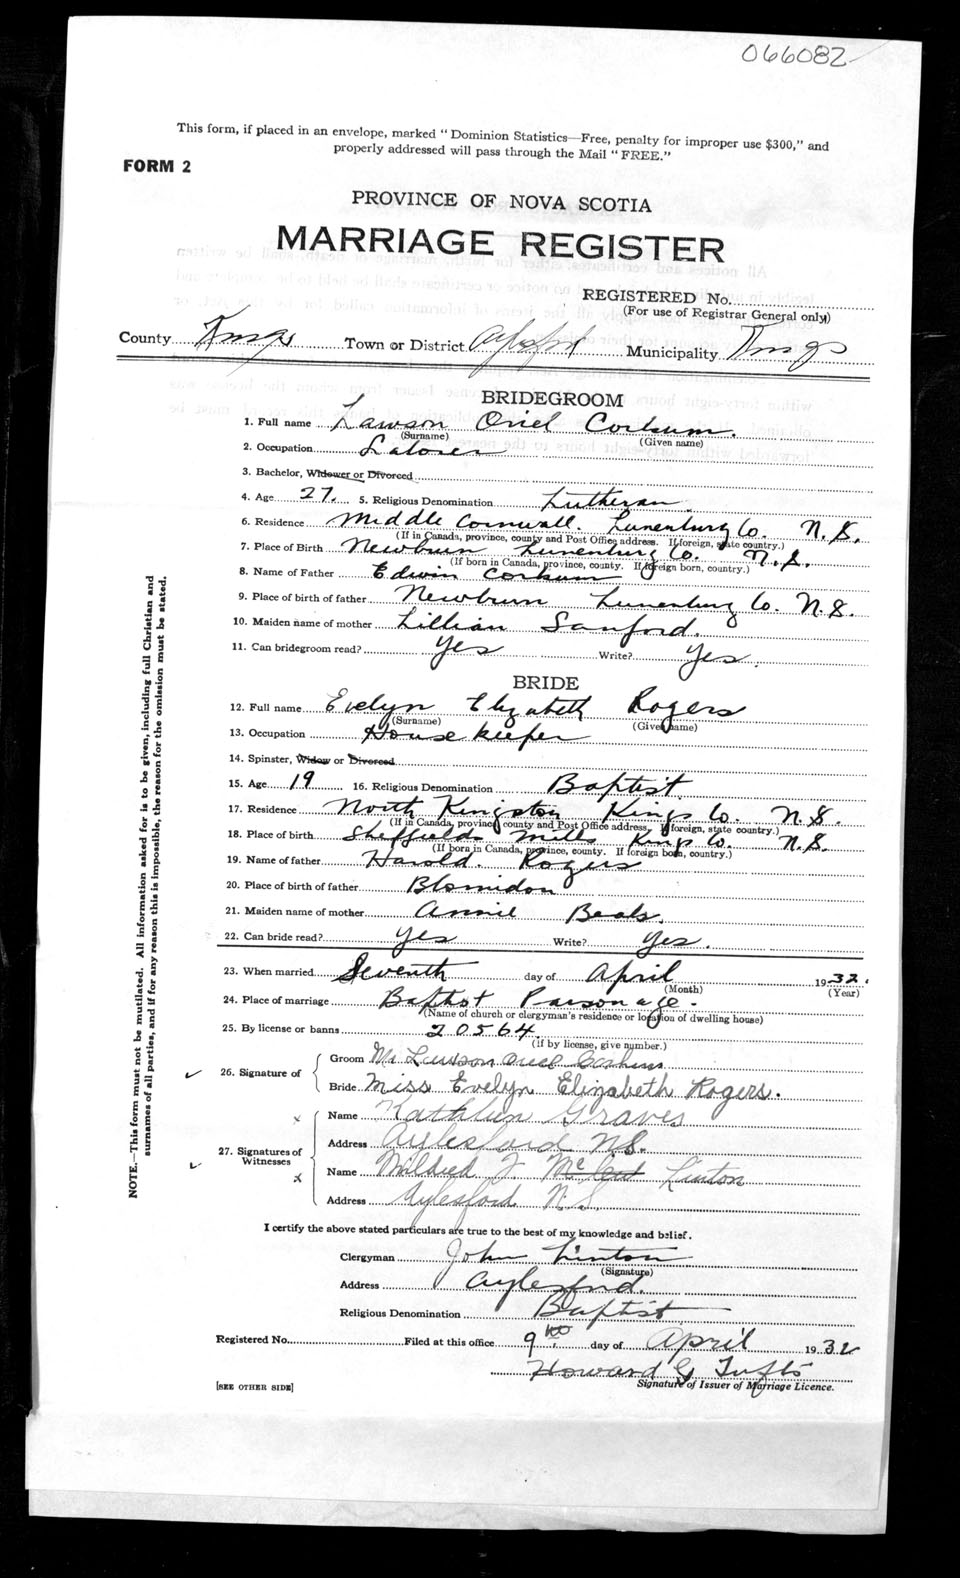 066082
This form, if placed in an envelope, marked "Dominion Statistics—Free, penalty for improper use $300," and
properly addressed will pass through the Mail "FREE."
FORM 2
PROVINCE OF NOVA SCOTIA
MARRIAGE REGISTER
REGISTERED No.
(For use of Registrar General only)
County Kings Town or District Aylesford Municipality Kings
BRIDEGROOM
1. Full name Lawson Oriel Corkum.
(Surname) (Given name)
2. Occupation Laborer
3. Bachelor, Widower or Divorced
4. Age 27. 5. Religious Denomination Lutheran
6. Residence Middle Cornwall. Lunenburg Co. N.S.
(If in Canada, province, county and Post Office address. If foreign, state country.)
7. Place of Birth Newburn Lunenburg Co. N.S.
(If born in Canada, province, county. If foreign born, country.)
8. Name of Father Edwin Corkum
9. Place of birth of father Newburn Lunenburg Co. N.S.
10. Maiden name of mother Lillian Sanford.
11. Can bridegroom read? Yes Write? Yes.
BRIDE
12. Full name Evelyn Elizabeth Rogers
(Surname) (Given name)
13. Occupation House keeper
14. Spinster, Widow or Divorced
15. Age 19 16. Religious Denomination Baptist
17. Residence North Kingston Kings Co. N.S.
(If in Canada, province, county and Post Office address, If foreign, state country.)
18. Place of birth Sheffields Mills Kings Co. N.S.
(If born in Canada, province, county. If foreign born, country.)
19. Name of father Harold. Rogers
20. Place of birth of father Blomidon
21. Maiden name of mother Annie Beals.
22. Can bride read? Yes Write? Yes.
23. When married Seventh day of April 1932.
(Month) (Year)
24. Place of marriage Baptist Parsonage.
(Name of church or clergyman's residence or location of dwelling house)
25. By license or banns 20564.
(if by license, give number.)
26. Signature of
Groom Mr Lawson Oriel Corkum
Bride Miss Evelyn Elizabeth Rogers.
27. Signatures of Witnesses
Name Kathleen Graves
Address Aylesford N.S.
Name Mildred J. Linton
Address Aylesford N.S.
I certify the above stated particulars are true to the best of my knowledge and belief.
Clergyman John Linton
(Signature)
Address Aylesford.
Religious Denomination Baptist
Registered No. Filed at this office 9 day of April 1932
Howard G Tufts
Signature of Issuer of Marriage Licence.
[SEE OTHER SIDE]
NOTE.—This form must not be mutilated. All information asked for is to be given, including full Christian and
surnames of all parties, and if for any reason this is impossible, the reason for the omission must be stated.